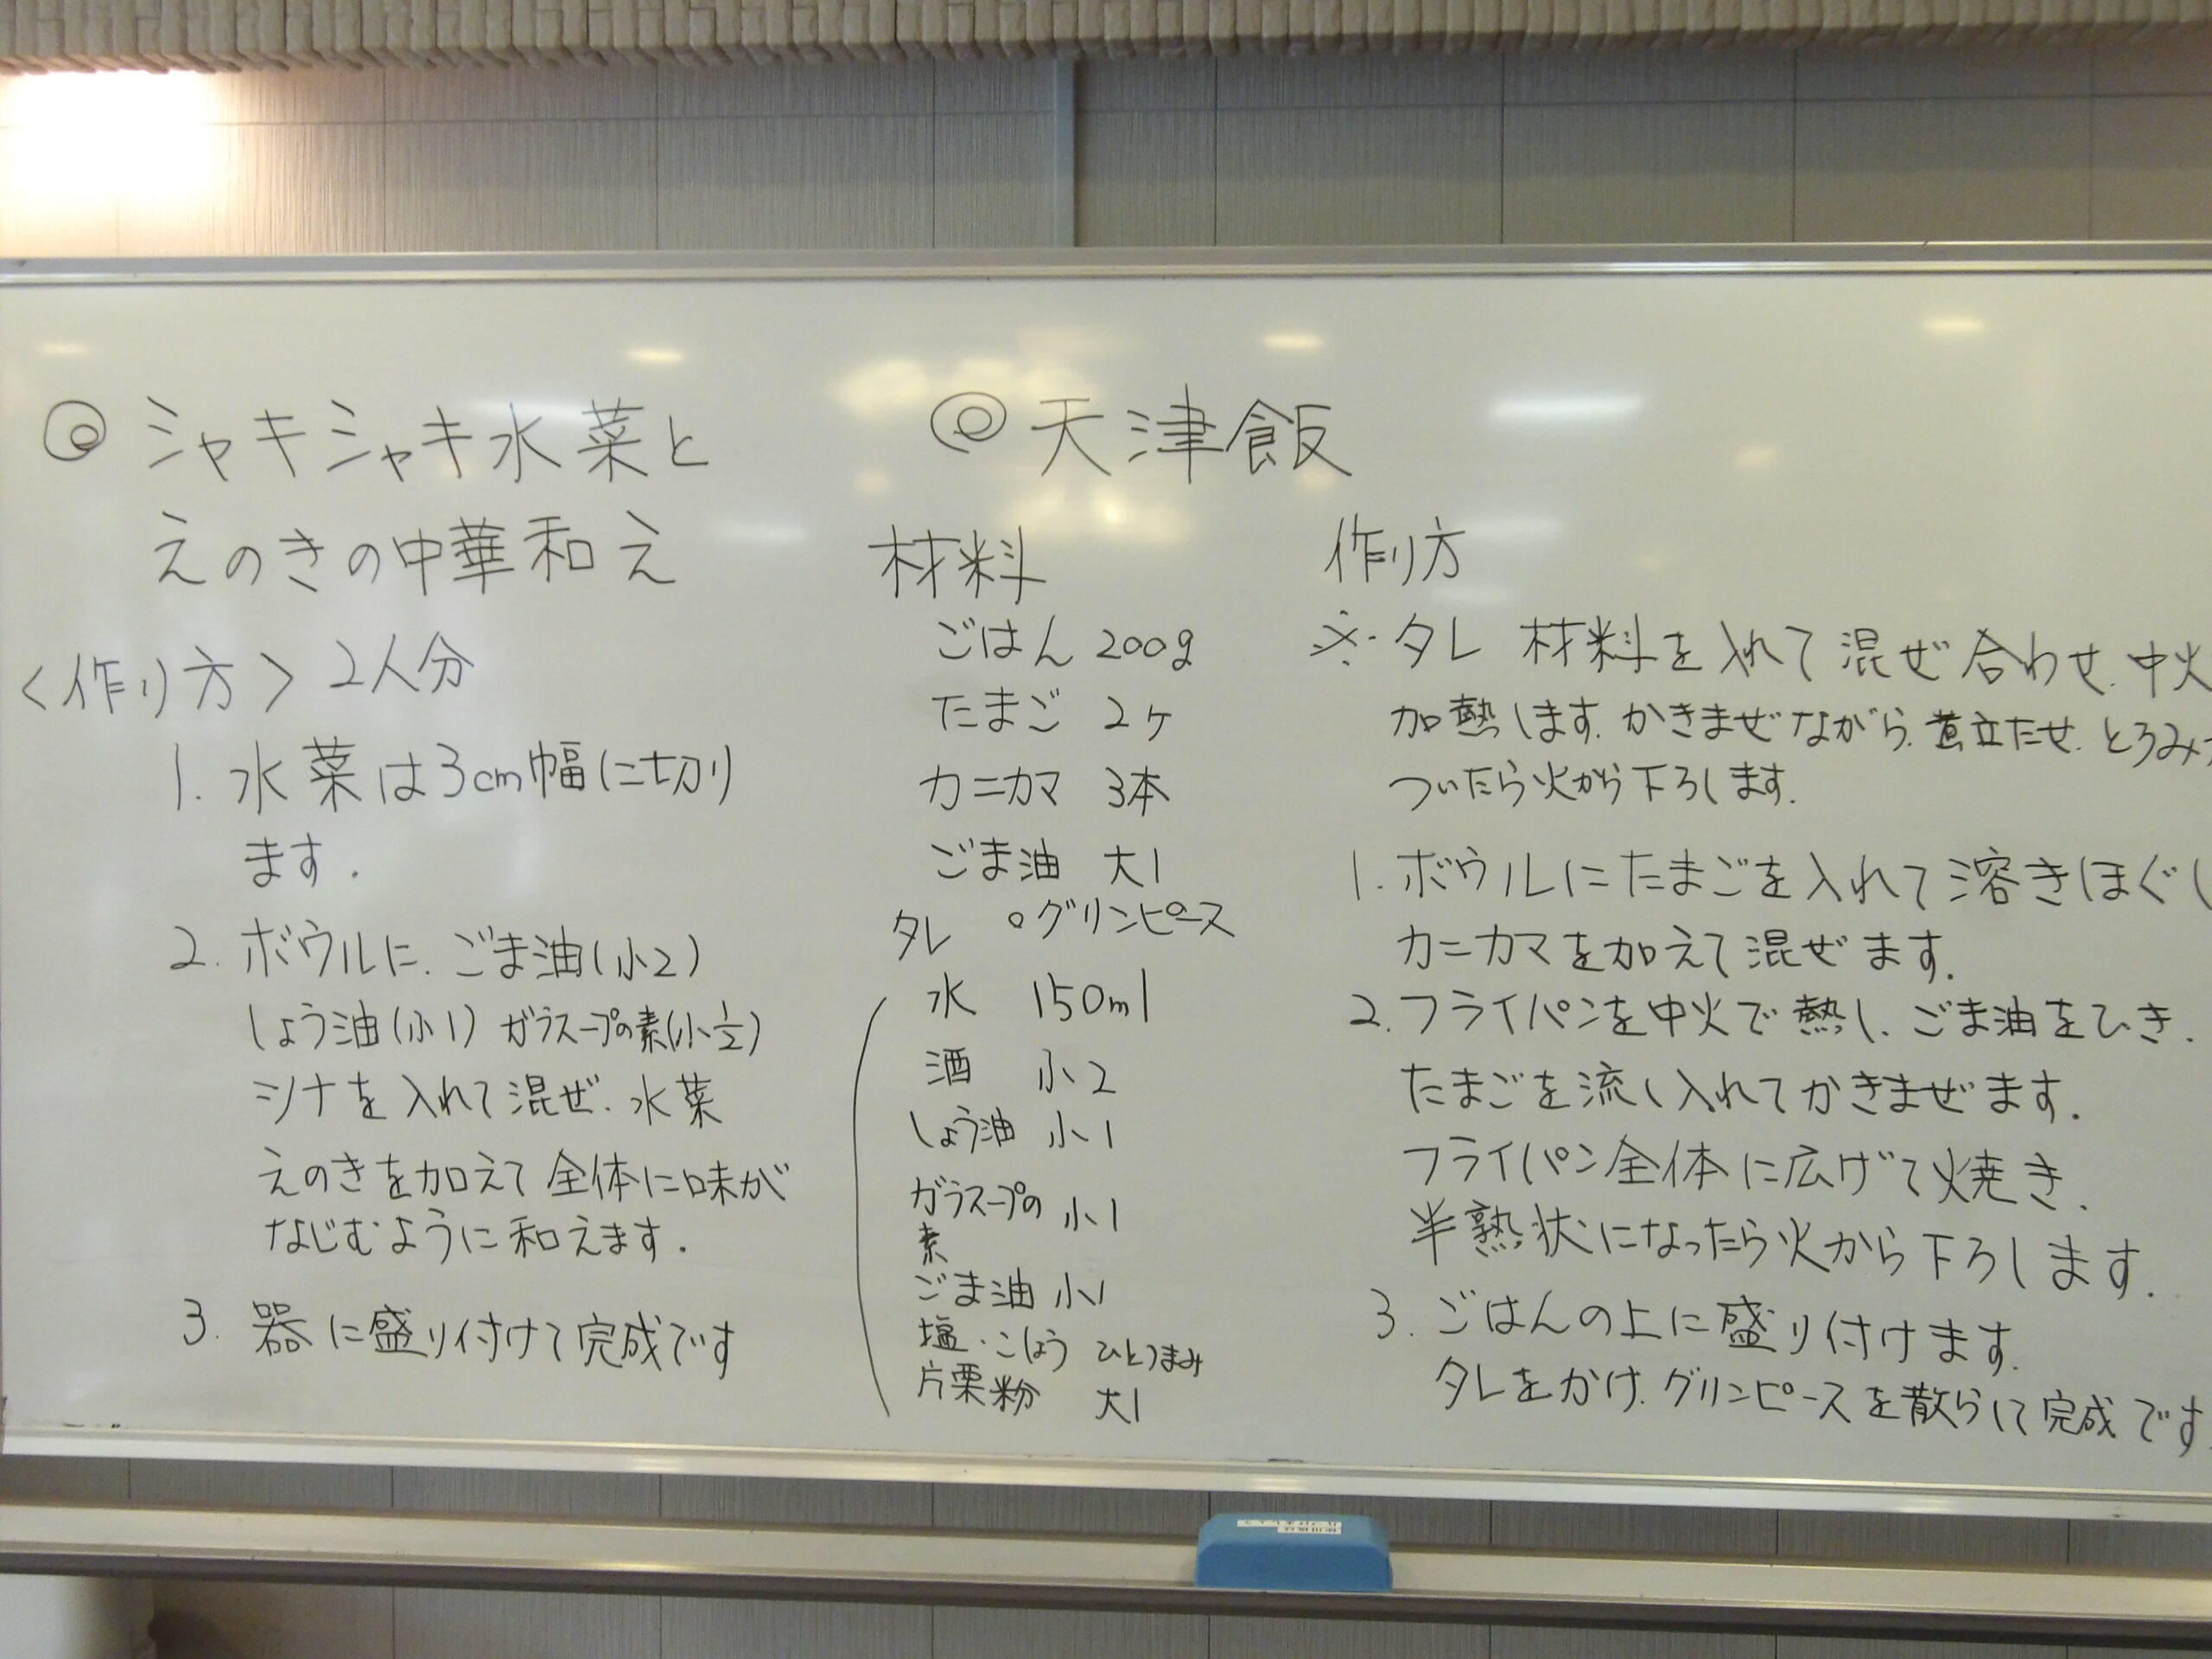 ◎シャキシャキ水菜と
えのきの中華和え
<作り方> 2人分
1. 水菜は3cm幅に切り
ます.
2. ボウルに. ごま油(小2)
しょう油(小1) ガラスープの素(小1/2)
シナを入れて混ぜ. 水菜
えのきを加えて全体に味が
なじむように和えます.
3. 器に盛り付けて完成です
◎天津飯
材料
ごはん 200g
たまご 2ヶ
カニカマ 3本
ごま油 大1
タレ ○グリンピース
水 150ml
酒 小2
しょう油 小1
ガラスープの 小1
素
ごま油 小1
塩・こしょう ひとつまみ
片栗粉 大1
作り方
※・タレ 材料を入れて混ぜ合わせ. 中火
加熱します. かきまぜながら. 煮立たせ. とろみが
ついたら火から下ろします.
1. ボウルにたまごを入れて溶きほぐし
カニカマを加えて混ぜます.
2. フライパンを中火で熱し. ごま油をひき.
たまごを流し入れてかきまぜます.
フライパン全体に広げて焼き.
半熟状になったら火から下ろします.
3. ごはんの上に盛り付けます.
タレをかけ. グリンピースを散らして完成です.